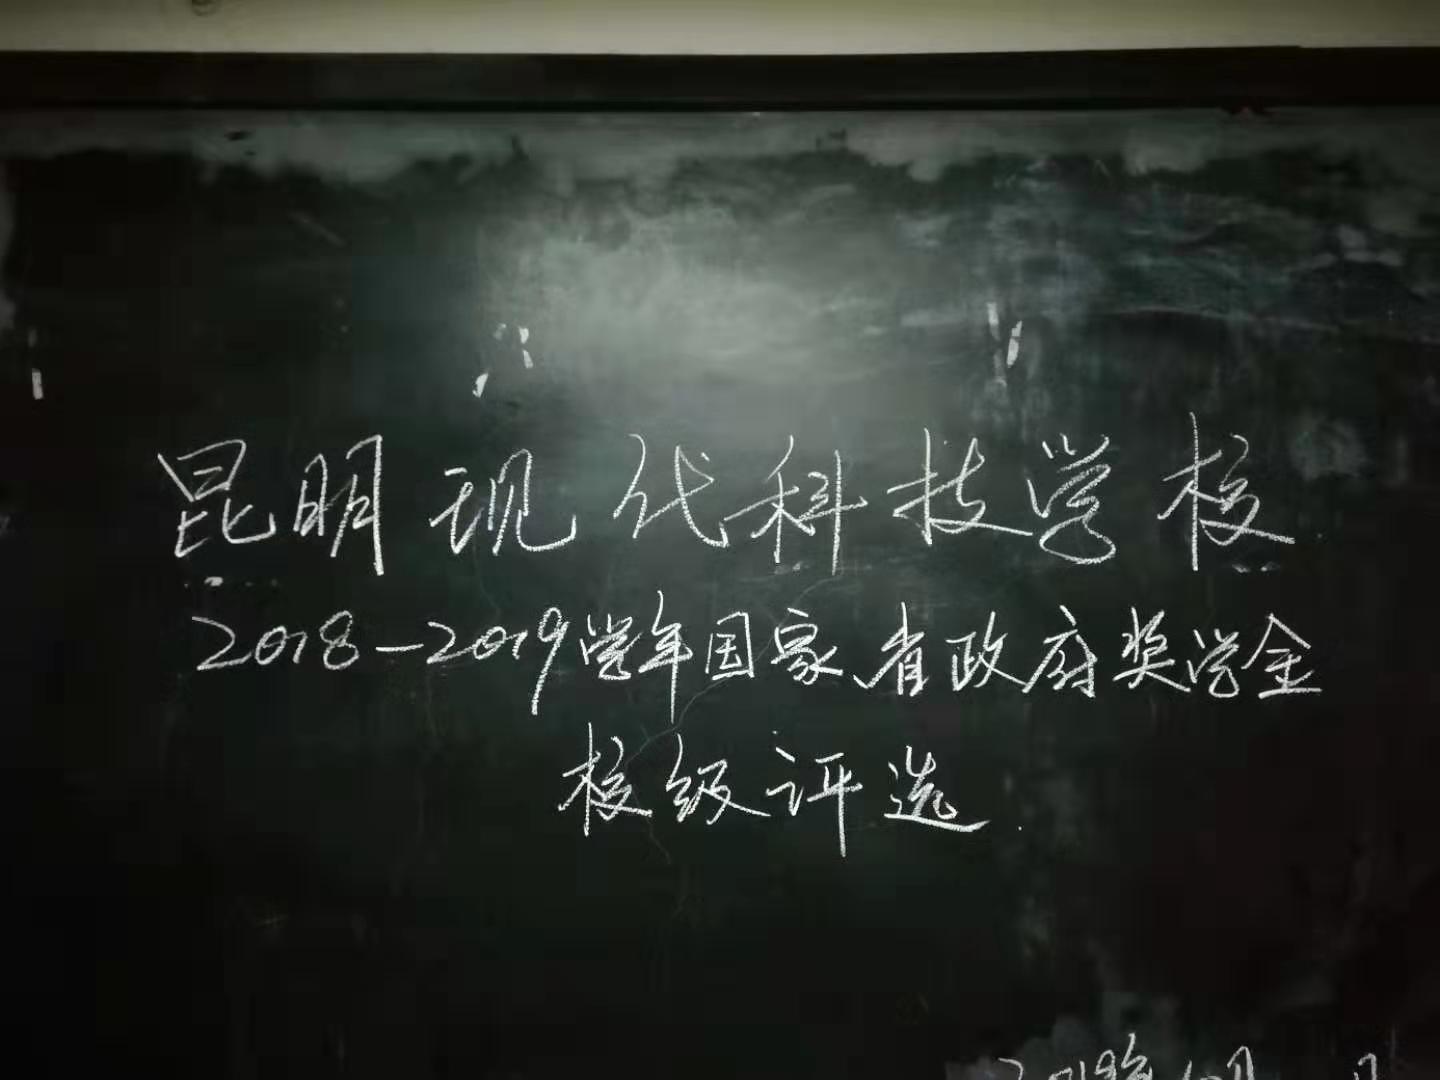 昆明现代科技学校
2018-2019学年国家、省政府奖学金
校级评选